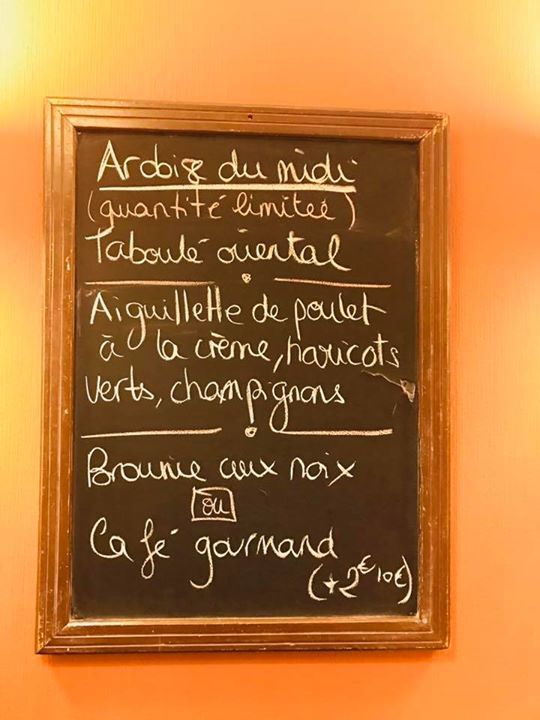 Ardoise du midi
(quantité limitée)
Taboulé oriental
Aiguillette de poulet
à la crème, haricots
verts, champignons
Brownie aux noix
ou
Café gourmand
(+2€10€)